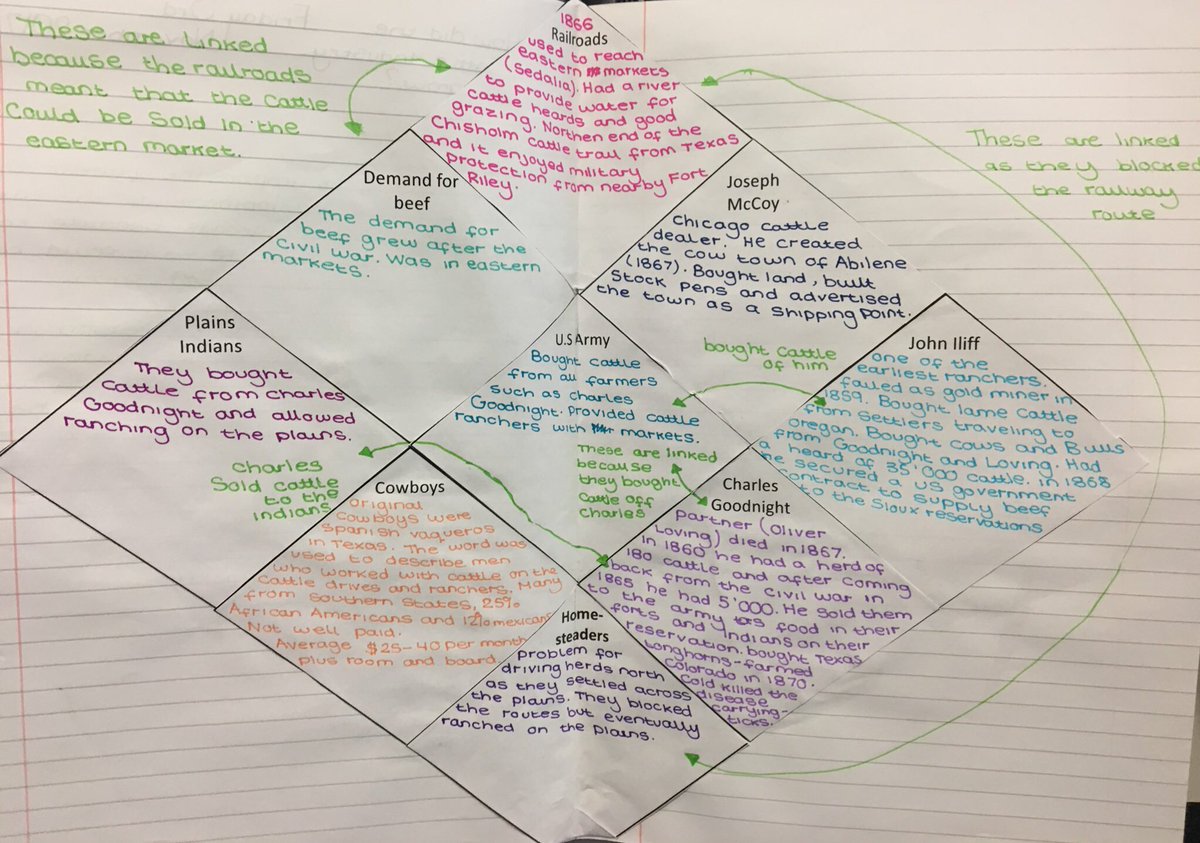 These are linked
because the railroads
meant that the cattle
could be sold in the
eastern market.
1866
Railroads
used to reach
eastern markets
(Sedalia). Had a river
to provide water for
cattle heards and good
grazing. Northen end of the
Chisholm cattle trail from Texas
and it enjoyed military
protection from nearby Fort
Riley.
These are linked
as they blocked
the railway
route
Demand for
beef
The demand for
beef grew after the
civil war. Was in eastern
markets.
Joseph
McCoy
Chicago cattle
dealer. He created
the cow town of Abilene
(1867). Bought land, built
stock pens and advertised
the town as a shipping point.
Plains
Indians
They bought
cattle from charles
Goodnight and allowed
ranching on the plains.
charles
Sold cattle
to the
indians
U.S Army
Bought cattle
from all farmers
such as charles
Goodnight. Provided cattle
ranchers with markets.
bought cattle
of him
These are linked
because
they bought
cattle off
charles
John Iliff
one of the
earliest ranchers.
failed as gold miner in
1859. Bought lame cattle
from settlers traveling to
oregan. Bought cows and Bulls
from Goodnight and Loving. Had
a heard of 35'000 cattle. in 1868
he secured a US government
contract to supply beef
to the Sioux reservations
Cowboys
original
cowboys were
spanish vaqueros
in Texas. The word was
used to describe men
who worked with cattle on the
cattle drives and ranchers. Many
from Southern States, 25%
African Americans and 12% mexican
Not well paid.
Average $25-40 per month
plus room and board
Charles
Goodnight
partner (Oliver
Loving) died in 1867.
in 1860 he had a herd of
180 cattle and after coming
back from the civil war in
1865 he had 5'000. He sold them
to the army as food in their
forts and indians on their
reservation. bought Texas
Longhorns-farmed
Colorado in 1870.
Cold killed the
disease
carrying-
ticks.
Home-
steaders
problem for
driving herds north
as they settled across
the plains. They blocked
the routes but eventually
ranched on the plains.